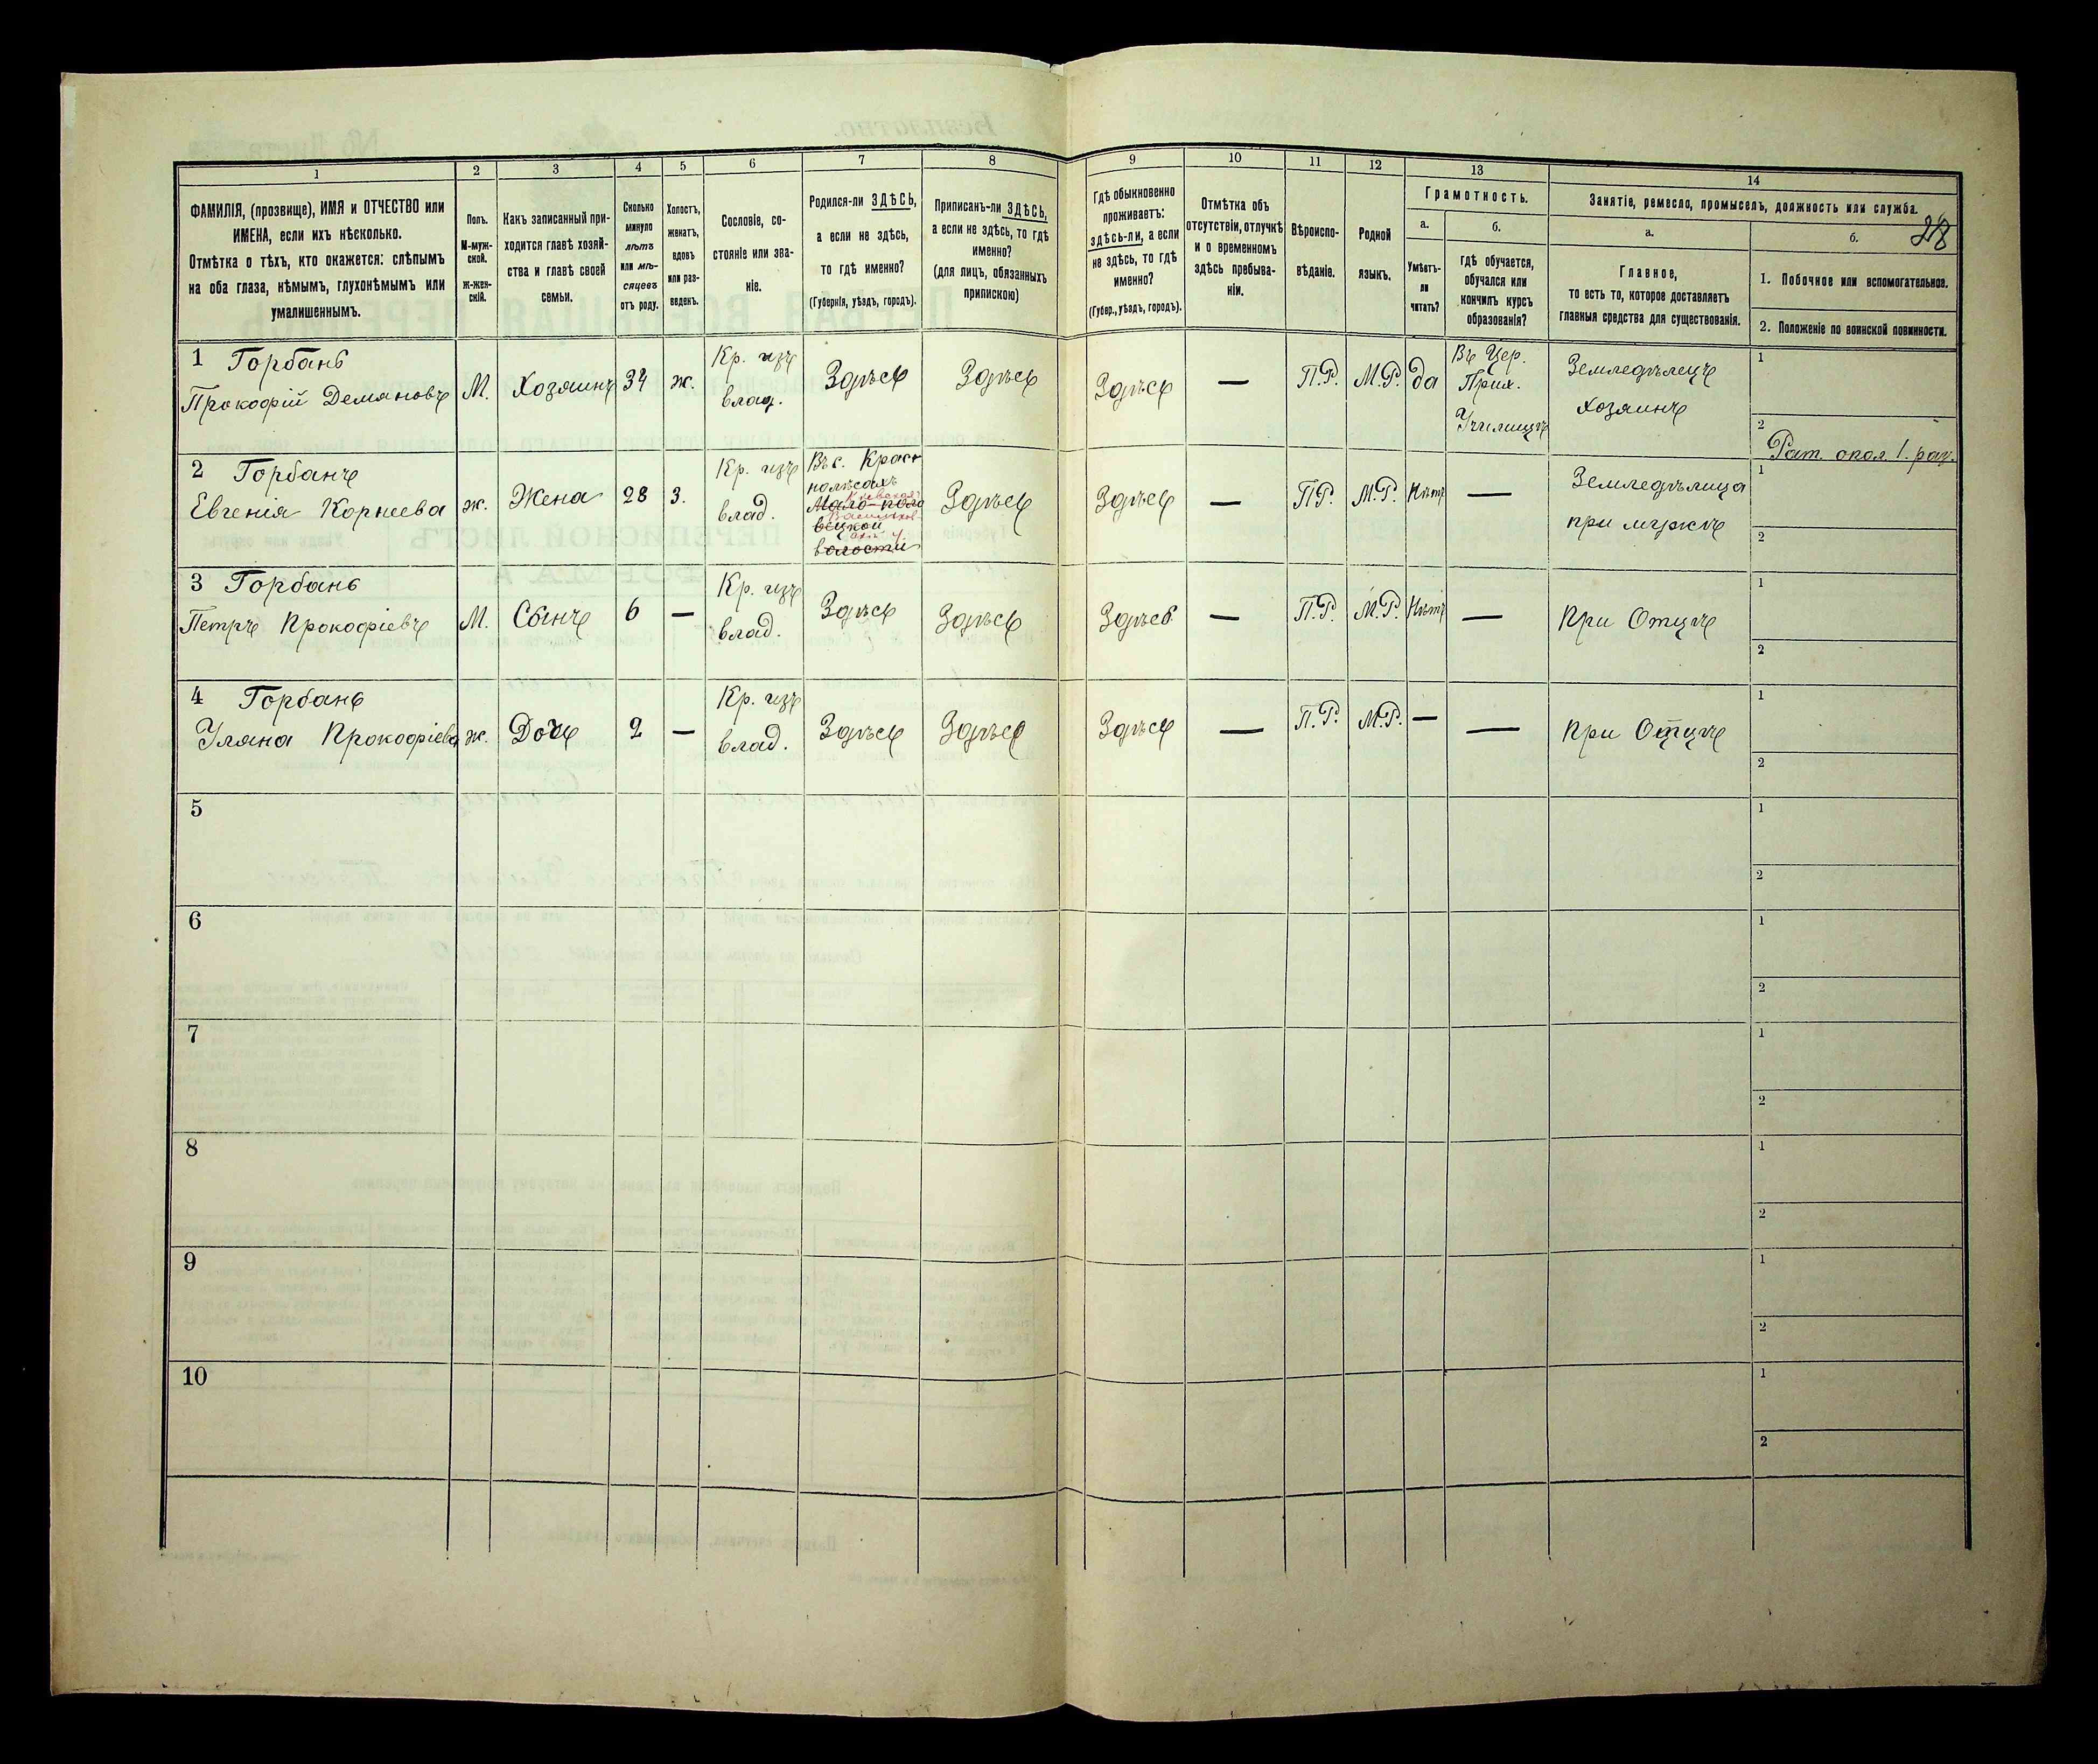 1
2
3
4
5
6
7
8
9
10
11
12
13
14
ФАМИЛІЯ, (прозвище), ИМЯ и ОТЧЕСТВО или
ИМЕНА, если ихъ нѣсколько.
Отмѣтка о тѣхъ, кто окажется: слѣпымъ
на оба глаза, нѣмымъ, глухонѣмымъ или
умалишеннымъ.
Полъ.
М-муж-
ской.
ж-жен-
скій.
Какъ записанный при-
ходится главѣ хозяй-
ства и главѣ своей
семьи.
Сколько
минуло
лѣтъ
или мѣ-
сяцевъ
отъ роду.
Холостъ,
женатъ,
вдовъ
или раз-
веденъ.
Сословіе, со-
стояніе или зва-
ніе.
Родился-ли ЗДѢСЬ,
а если не здѣсь,
то гдѣ именно?
(Губернія, уѣздъ, городъ).
Приписанъ-ли ЗДѢСЬ,
а если не здѣсь, то гдѣ
именно?
(для лицъ, обязанныхъ
припискою)
Гдѣ обыкновенно
проживаетъ:
здѣсь-ли, а если
не здѣсь, то гдѣ
именно?
(Губер., уѣздъ, городъ).
Отмѣтка объ
отсутствіи, отлучкѣ
и о временномъ
здѣсь пребыва-
ніи.
Вѣроиспо-
вѣданіе.
Родной
языкъ.
Грамотность.
а.
Умѣетъ-
ли
читать?
б.
гдѣ обучается,
обучался или
кончилъ курсъ
образованія?
Занятіе, ремесло, промыселъ, должность или служба.
а.
Главное,
то есть то, которое доставляетъ
главныя средства для существованія.
б.
1. Побочное или вспомогательное.
2. Положеніе по воинской повинности.
1 Горбань
Прокофій Демяновъ
М.
Хозяинъ
34
ж.
Кр. изъ
влад.
Здѣсь
Здѣсь
Здѣсь
—
П.Р.
М.Р.
да
Въ Цер.
Прих.
Училищѣ
Земледѣлецъ
хозяинъ
1
2
Рат. опол. 1. раз.
2 Горбанъ
Евгенія Корнеева
ж.
Жена
28
З.
Кр. изъ
влад.
Въ с. Крас
Киевская
Васильков-
вецкой
ской у.
волости
Здѣсь
Здѣсь
—
П.Р.
М.Р.
Нѣтъ
—
Земледѣлица
при мужѣ
1
2
3 Горбань
Петръ Прокофіевъ
М.
Сынъ
6
—
Кр. изъ
влад.
Здѣсь
Здѣсь
Здѣсь
—
П.Р.
М.Р.
Нѣтъ
—
При Отцѣ
1
2
4 Горбань
Уляна Прокофіева
ж.
Дочь
2
—
Кр. изъ
влад.
Здѣсь
Здѣсь
Здѣсь
—
П.Р.
М.Р.
—
—
При Отцѣ
1
2
5
1
2
6
1
2
7
1
2
8
1
2
9
1
2
10
1
2